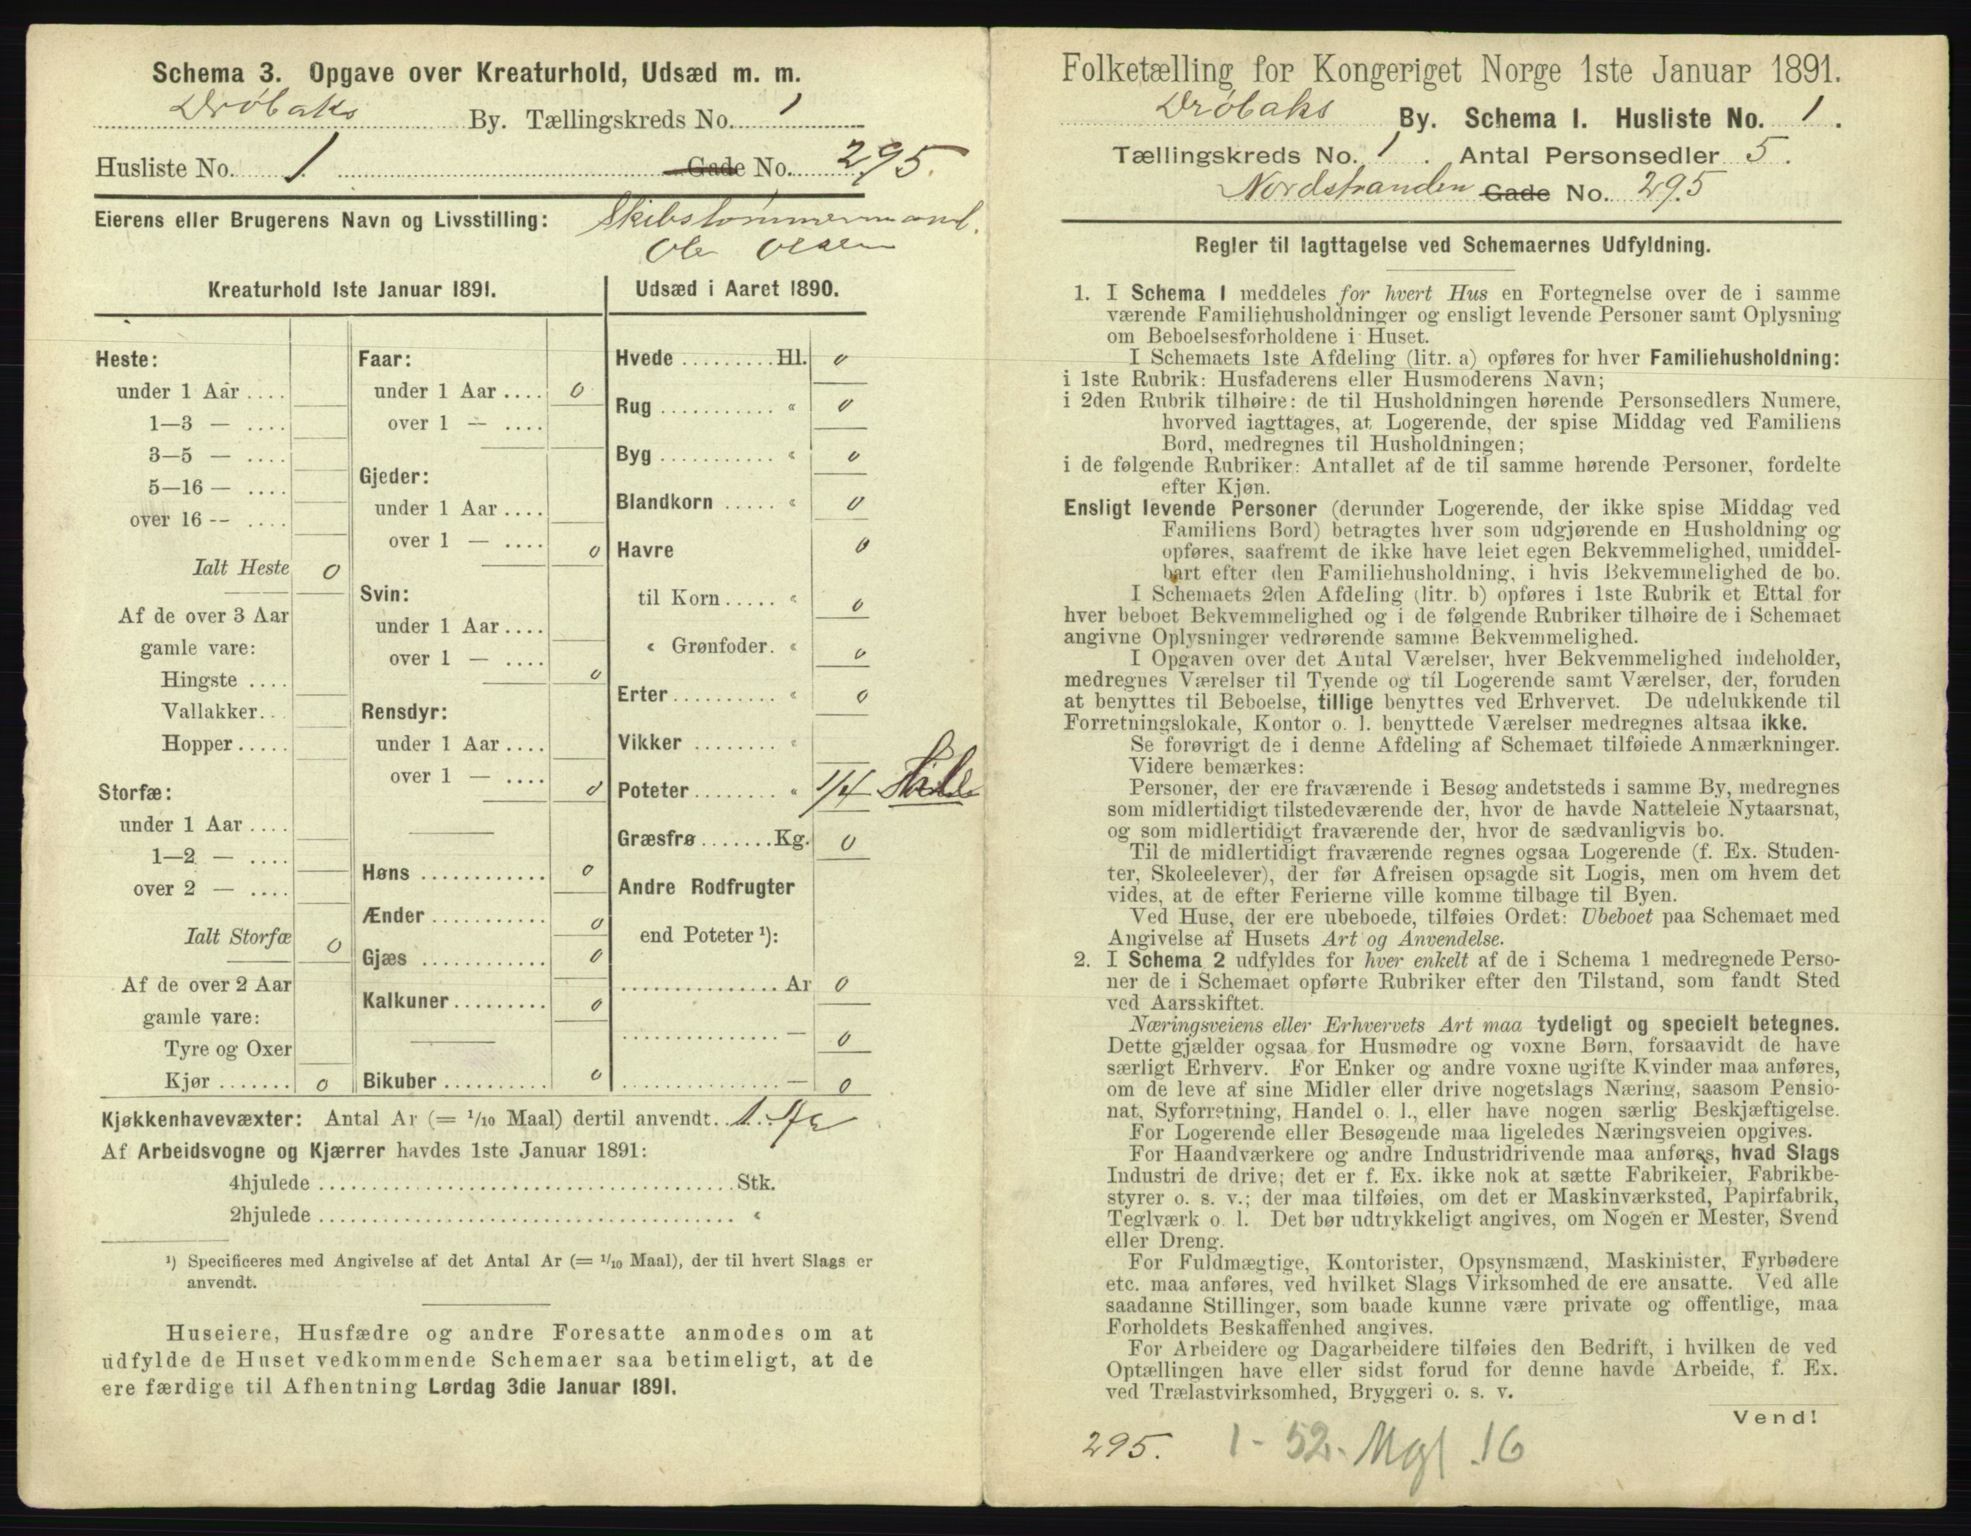 Schema 3. Opgave over Kreaturhold, Udsæd m. m.
Drøbaks By. Tællingskreds No. 1
Husliste No. 1 Gade No. 295.
Eierens eller Brugerens Navn og Livsstilling: Skibstømmermand.
Ole Olsen
Kreaturhold 1ste Januar 1891.
Heste:
under 1 Aar ....
1—3 — ....
3—5 — ....
5—16 — ....
over 16 -- ....
Ialt Heste 0
Af de over 3 Aar
gamle vare:
Hingste ....
Vallakker...
Hopper.....
Storfæ:
under 1 Aar ....
1—2 — ....
over 2 — ....
Ialt Storfæ 0
Af de over 2 Aar
gamle vare:
Tyre og Oxer
Kjør ....... 0
Faar:
under 1 Aar .... 0
over 1 — ....
Gjeder:
under 1 Aar ....
over 1 — .... 0
Svin:
under 1 Aar ....
over 1 — .... 0
Rensdyr:
under 1 Aar ....
over 1 — .... 0
Høns ............ 0
Ænder ........... 0
Gjæs ............ 0
Kalkuner......... 0
Bikuber .......... 0
Udsæd i Aaret 1890.
Hvede .........Hl. 0
Rug ........... " 0
Byg ........... " 0
Blandkorn ..... " 0
Havre 0
til Korn ..... " 0
" Grønfoder. " 0
Erter.......... " 0
Vikker ........ "
Poteter........ " 1/4
Græsfrø.......Kg. 0
Andre Rodfrugter
end Poteter ¹):
............... Ar 0
............... — 0
............... — 0
Kjøkkenhavevæxter: Antal Ar (= 1/10 Maal) dertil anvendt. 1 Ar
Af Arbeidsvogne og Kjærrer havdes 1ste Januar 1891:
4hjulede ........................................ Stk.
2hjulede ........................................ "
¹) Specificeres med Angivelse af det Antal Ar (= 1/10 Maal), der til hvert Slags er
anvendt.
Huseiere, Husfædre og andre Foresatte anmodes om at
udfylde de Huset vedkommende Schemaer saa betimeligt, at de
ere færdige til Afhentning Lørdag 3die Januar 1891.
Folketælling for Kongeriget Norge 1ste Januar 1891.
Drøbaks By. Schema I. Husliste No. 1.
Tællingskreds No. 1. Antal Personsedler 5.
Nordstranden Gade No. 295
Regler til Iagttagelse ved Schemaernes Udfyldning.
1. I Schema I meddeles for hvert Hus en Fortegnelse over de i samme
værende Familiehusholdninger og ensligt levende Personer samt Oplysning
om Beboelsesforholdene i Huset.
I Schemaets 1ste Afdeling (litr. a) opføres for hver Familiehusholdning:
i 1ste Rubrik: Husfaderens eller Husmoderens Navn;
i 2den Rubrik tilhøire: de til Husholdningen hørende Personsedlers Numere,
hvorved iagttages, at Logerende, der spise Middag ved Familiens
Bord, medregnes til Husholdningen;
i de følgende Rubriker: Antallet af de til samme hørende Personer, fordelte
efter Kjøn.
Ensligt levende Personer (derunder Logerende, der ikke spise Middag ved
Familiens Bord) betragtes hver som udgjørende en Husholdning og
opføres, saafremt de ikke have leiet egen Bekvemmelighed, umiddel-
bart efter den Familiehusholdning, i hvis Bekvemmelighed de bo.
I Schemaets 2den Afdeling (litr. b) opføres i 1ste Rubrik et Ettal for
hver beboet Bekvemmelighed og i de følgende Rubriker tilhøire de i Schemaet
angivne Oplysninger vedrørende samme Bekvemmelighed.
I Opgaven over det Antal Værelser, hver Bekvemmelighed indeholder,
medregnes Værelser til Tyende og til Logerende samt Værelser, der, foruden
at benyttes til Beboelse, tillige benyttes ved Erhvervet. De udelukkende til
Forretningslokale, Kontor o. l. benyttede Værelser medregnes altsaa ikke.
Se forøvrigt de i denne Afdeling af Schemaet tilføiede Anmærkninger.
Videre bemærkes:
Personer, der ere fraværende i Besøg andetsteds i samme By, medregnes
som midlertidigt tilstedeværende der, hvor de havde Natteleie Nytaarsnat,
og som midlertidigt fraværende der, hvor de sædvanligvis bo.
Til de midlertidigt fraværende regnes ogsaa Logerende (f. Ex. Studen-
ter, Skoleelever), der før Afreisen opsagde sit Logis, men om hvem det
vides, at de efter Ferierne ville komme tilbage til Byen.
Ved Huse, der ere ubeboede, tilføies Ordet: Ubeboet paa Schemaet med
Angivelse af Husets Art og Anvendelse.
2. I Schema 2 udfyldes for hver enkelt af de i Schema 1 medregnede Perso-
ner de i Schemaet opførte Rubriker efter den Tilstand, som fandt Sted
ved Aarsskiftet.
Næringsveiens eller Erhvervets Art maa tydeligt og specielt betegnes.
Dette gjælder ogsaa for Husmødre og voxne Børn, forsaavidt de have
særligt Erhverv. For Enker og andre voxne ugifte Kvinder maa anføres,
om de leve af sine Midler eller drive nogetslags Næring, saasom Pensio-
nat, Syforretning, Handel o. l., eller have nogen særlig Beskjæftigelse.
For Logerende eller Besøgende maa ligeledes Næringsveien opgives.
For Haandværkere og andre Industridrivende maa anføres, hvad Slags
Industri de drive; det er f. Ex. ikke nok at sætte Fabrikeier, Fabrikbe-
styrer o. s. v.; der maa tilføies, om det er Maskinværksted, Papirfabrik,
Teglværk o. l. Det bør udtrykkeligt angives, om Nogen er Mester, Svend
eller Dreng.
For Fuldmægtige, Kontorister, Opsynsmænd, Maskinister, Fyrbødere
etc. maa anføres, ved hvilket Slags Virksomhed de ere ansatte. Ved alle
saadanne Stillinger, som baade kunne være private og offentlige, maa
Forholdets Beskaffenhed angives.
For Arbeidere og Dagarbeidere tilføies den Bedrift, i hvilken de ved
Optællingen have eller sidst forud for denne havde Arbeide, f. Ex.
ved Trælastvirksomhed, Bryggeri o. s. v.
Vend!
295. 1 - 52 - Mgl. 16